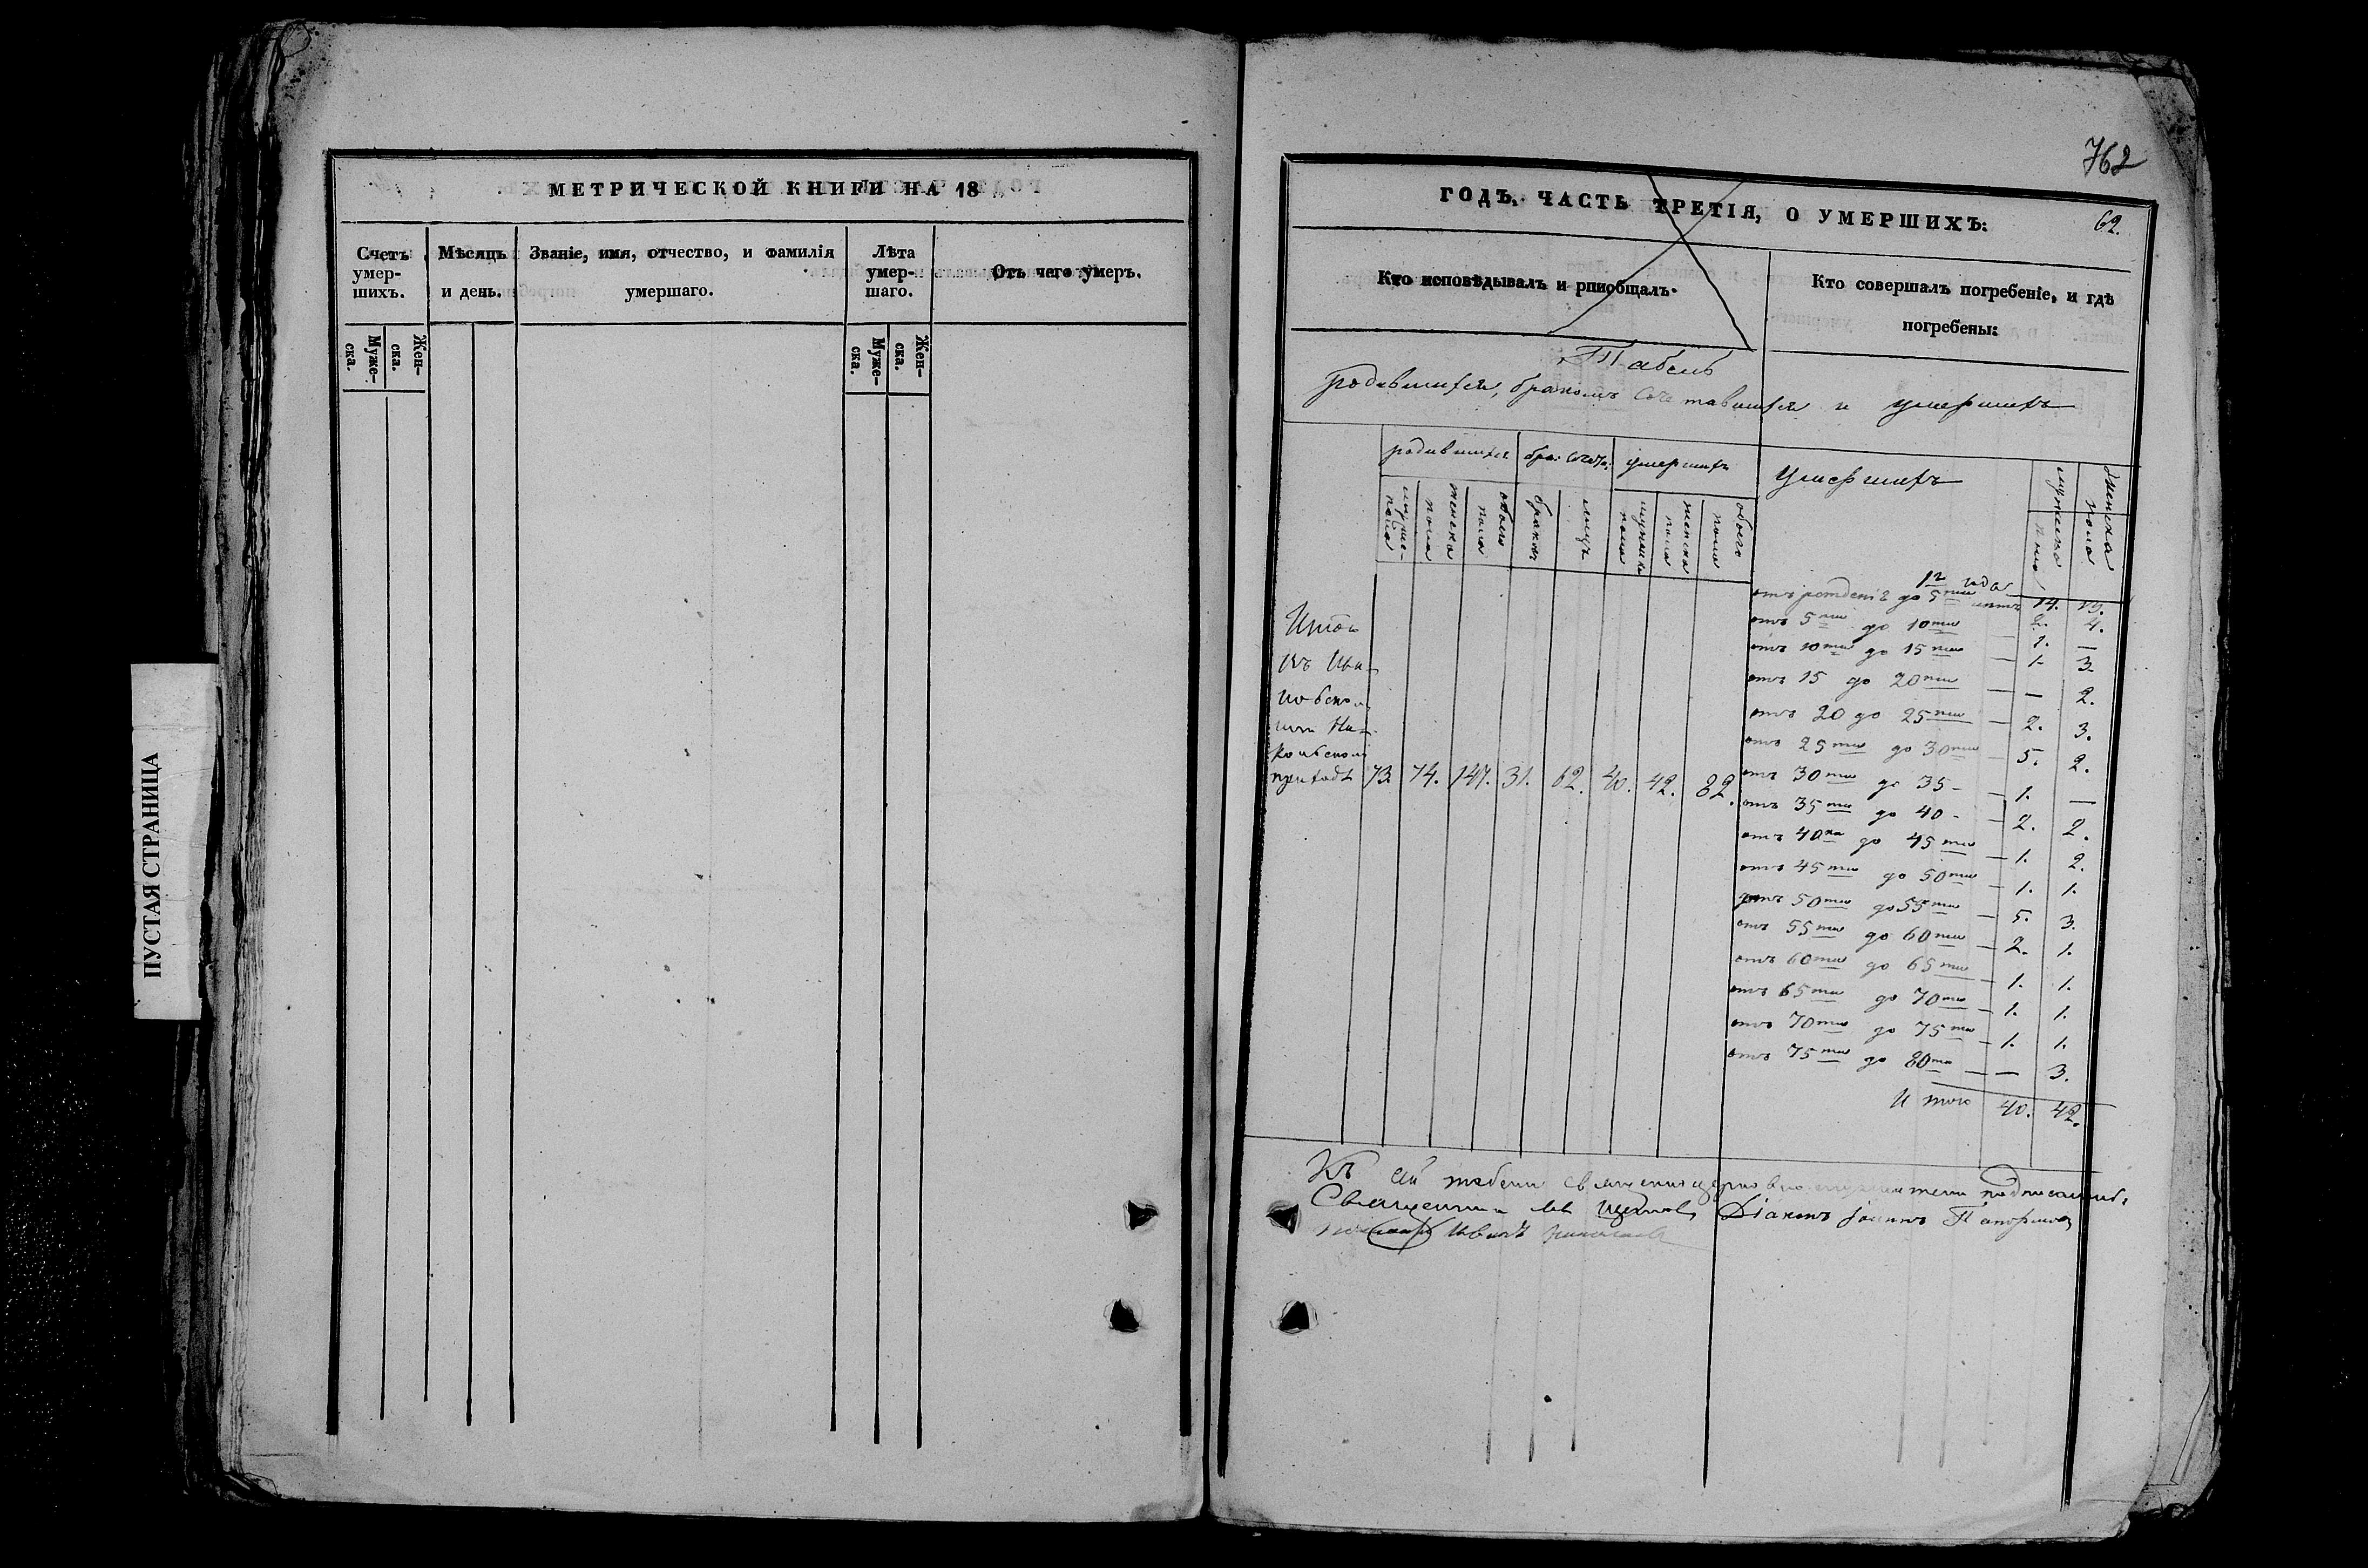 ПУСТАЯ СТРАНИЦА
МЕТРИЧЕСКОЙ КНИГИ НА 18
Счетъ умер-шихъ.
Мѣсяцъ и день.
Званіе, имя, отчество, и фамилія умершаго.
Лѣта умер-шаго.
Отъ чего умеръ.
Муже-ска.
Жен-ска.
Муже-ска.
Жен-ска.
762
ГОДЪ, ЧАСТЬ ТРЕТІЯ, О УМЕРШИХЪ:
62.
Кто исповѣдывалъ и рпиобщалъ.
Кто совершалъ погребеніе, и гдѣ погребены:
Табель
родившихся, бракомъ сочетавшихся и умершихъ
родившихся
умершихъ
мужеска пола
женска пола
обоего пола
браковъ
лицъ
мужеска пола
женска пола
обоего пола
Умершихъ
мужеска пола
женска пола
Итого
въ Ива-
новско
или Ни-
кольском
приходѣ 73. 74. 147. 31. 62. 40. 42. 82.
1го года
отъ рожденія до 5ти лѣтъ 14. 13.
2. 4.
отъ 5ти до 10ти — 1. —
отъ 10ти до 15ти — 1. 3.
отъ 15 до 20ти — — 2.
отъ 20 до 25ти — 2. 3.
отъ 25ти до 30ти — 5. 2.
отъ 30ти до 35 — 1. —
отъ 35ти до 40 — 2. 2.
отъ 40ка до 45ти — 1. 2.
отъ 45ти до 50ти — 1. 1.
отъ 50ти до 55ти — 5. 3.
отъ 55ти до 60ти — 2. 1.
отъ 60ти до 65ти — 1. 1.
отъ 65ти до 70ти — 1. 1.
отъ 70ти до 75ти — 1. 1.
отъ 75ти до 80ти — — 3.
Итого 40. 42.
Къ сей табели священноцерковнослужители подписались
Священникъ Діаконъ Іоаннъ
Иванъ